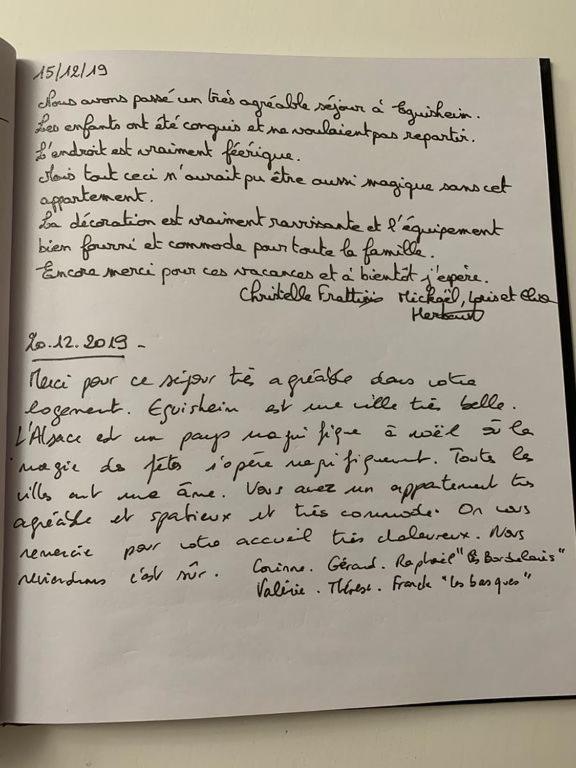 15/12/19
Nous avons passé un très agréable séjour à Eguisheim.
Les enfants ont été conquis et ne voulaient pas repartir.
L'endroit est vraiment féérique.
Mais tout ceci n'aurait pu être aussi magique sans cet
appartement.
La décoration est vraiment ravissante et l'équipement
bien fourni et commode pour toute la famille.
Encore merci pour ces vacances et à bientôt j'espère.
Christelle Mickaël, et
20.12.2019 -
Merci pour ce séjour très agréable dans votre
logement. Eguisheim est une ville très belle.
L'Alsace est un pays magnifique à noël où la
magie des fêtes s'opère magnifiquement. Toutes les
villes ont une âme. Vous avez un appartement très
agréable et spatieux et très commode. On vous
remercie pour votre accueil très chaleureux. Nous
reviendrons c'est sûr. Corinne. Gérard. Raphaël "les Bordelais"
Valérie. Thérèse. Franck "les basques"